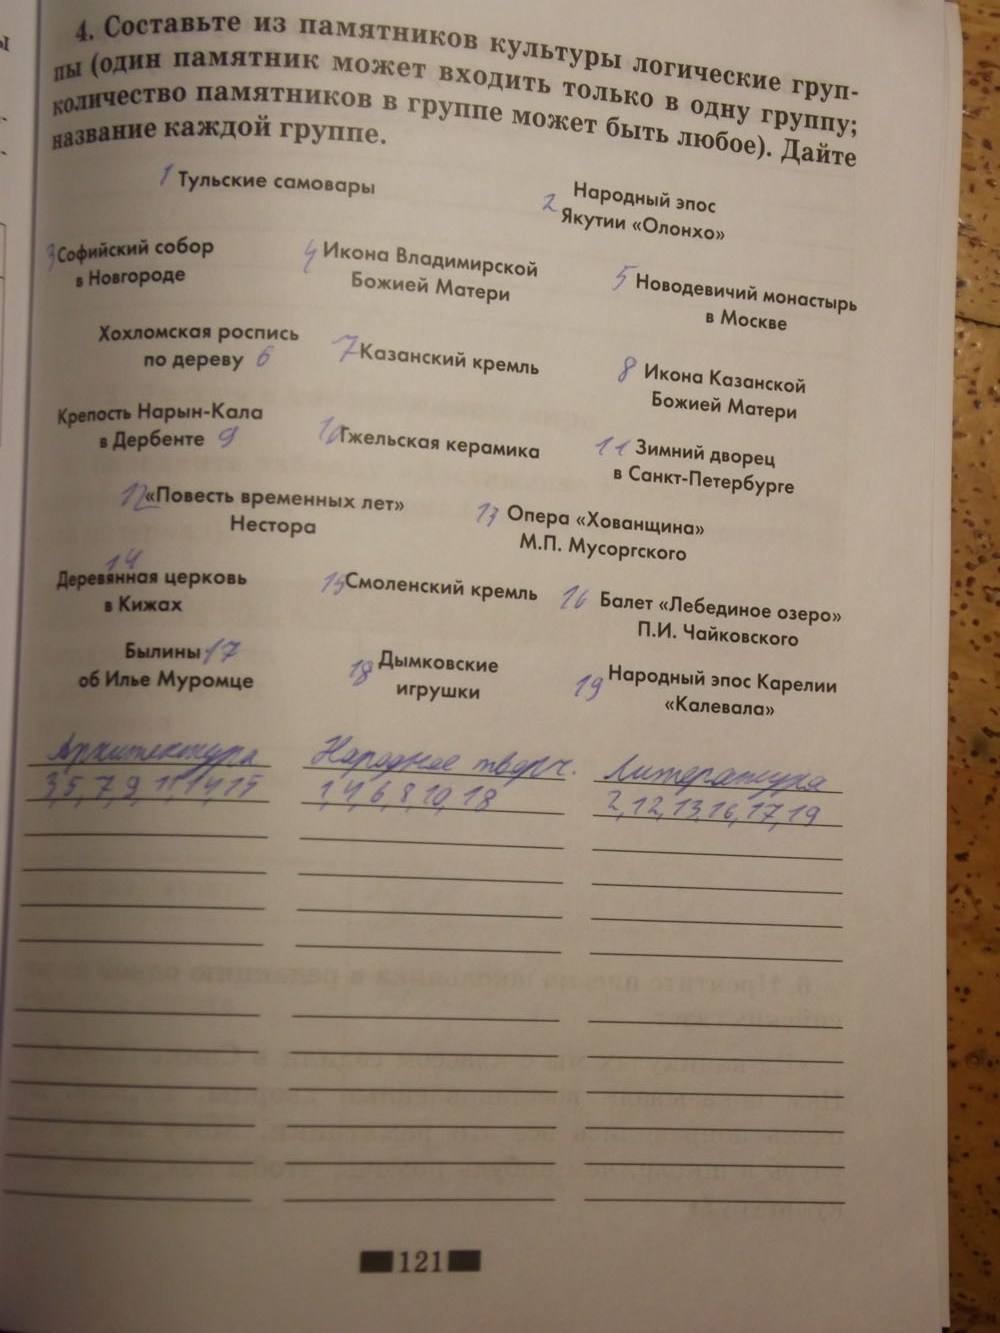 4. Составьте из памятников культуры логические груп-
пы (один памятник может входить только в одну группу;
количество памятников в группе может быть любое). Дайте
название каждой группе.
1 Тульские самовары
Народный эпос
2 Якутии «Олонхо»
3 Софийский собор
в Новгороде
4 Икона Владимирской
Божией Матери
5 Новодевичий монастырь
в Москве
Хохломская роспись
по дереву 6
7 Казанский кремль
8 Икона Казанской
Божией Матери
Крепость Нарын-Кала
в Дербенте 9
10 Гжельская керамика
11 Зимний дворец
в Санкт-Петербурге
12 «Повесть временных лет»
Нестора
13 Опера «Хованщина»
М.П. Мусоргского
14
Деревянная церковь
в Кижах
15 Смоленский кремль
16 Балет «Лебединое озеро»
П.И. Чайковского
Былины 17
об Илье Муромце
18 Дымковские
игрушки
19 Народный эпос Карелии
«Калевала»
Архитектура
3,5,7,9,11,14,15
Народное творч.
1,4,6,8,10,18
Литература
2,12,13,16,17,19
121